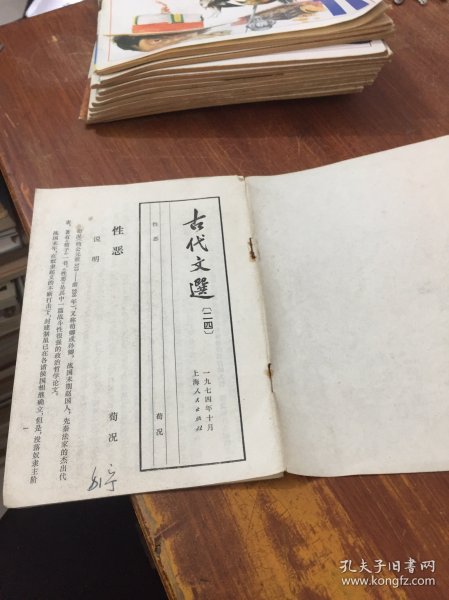 古代文選〔二四〕
一九七四年十月
上海人民出版社
性恶
荀况
性恶
荀况
说明
荀况(约公元前313—前238年),又称荀卿或孙卿,战国末期赵国人,先秦法家的杰出代
表,著有《荀子》一书。《性恶》是其中一篇战斗性很强的政治哲学论文。
战国末年,在奴隶起义的不断打击下,封建制虽已在各诸侯国相继确立,但是,没落奴隶主阶
一
孔夫子旧书网
www.kongfz.com